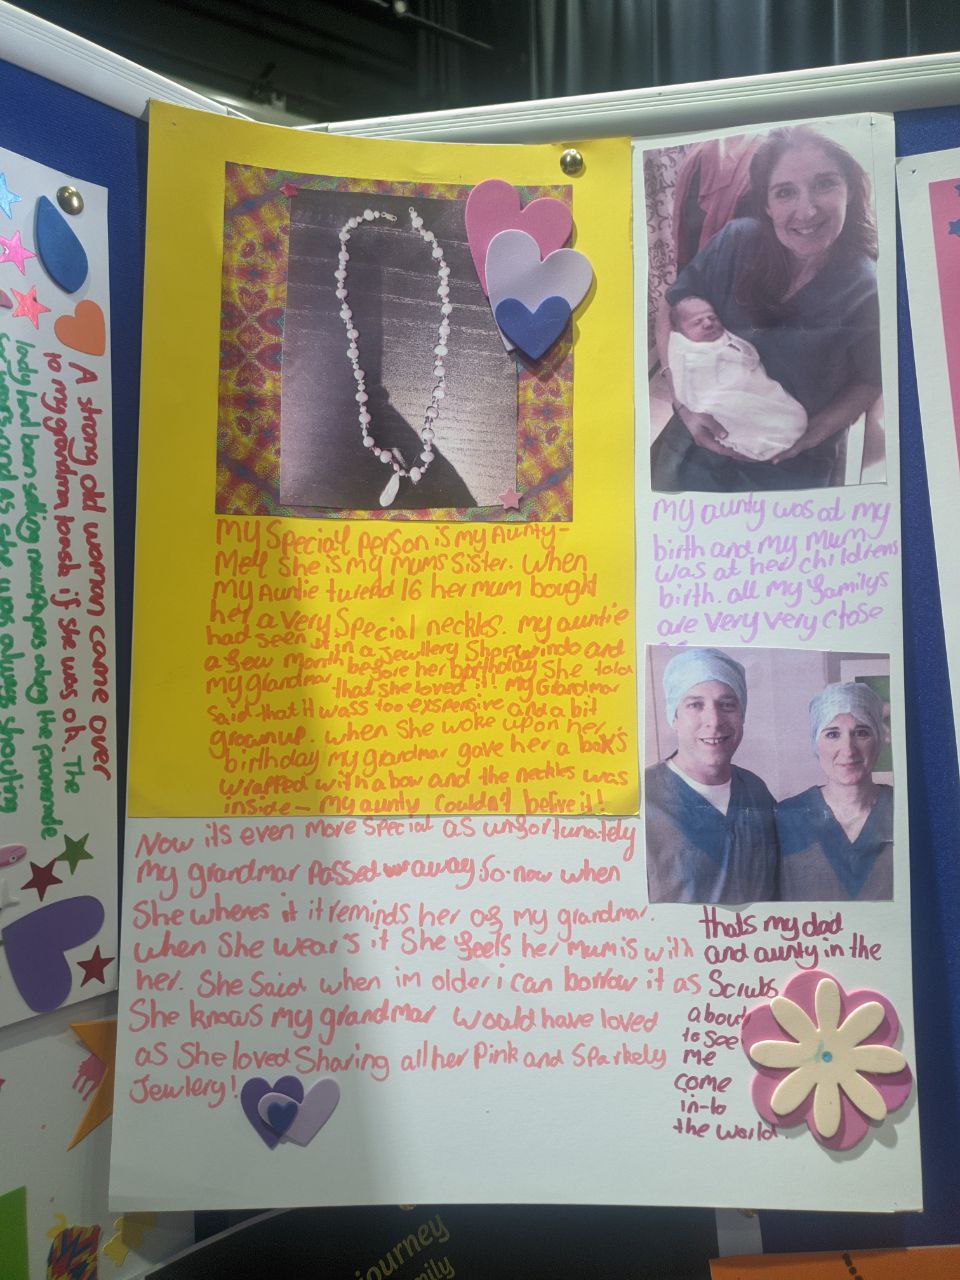 My Special Person is my Aunty-
Mell She is my mums Sister. When
my Auntie turend 16 her mum bought
her a very Special neckles. my auntie
had seen it in a Jewllery Shop windo and
a few month before her birthday She told
my grandmar that she loved it! my Grandmar
Said that it wass too exspensive and a bit
grown up. when She woke up on her
birthday my grandmar gave her a box
wrapped with a bow and the neckles was
inside - my aunty Couldn't belive it!
Now its even more special as unfortunately
my grandmar Passed away So now when
She wheres it it reminds her of my grandmar.
when She wear's it She feels her mum is with
her. She Said when im older i can borrow it as
She knows my grandmar would have loved
as She loved Sharing all her Pink and Sparkely
Jewlery!
my aunty was at my
birth and my mum
was at her childrens
birth. all my familys
are very very close
thats my dad
and aunty in the
Scrubs
about
to see
me
come
in-to
the world.
A strong old woman came over
to my grandma to ask if she was oh. The
lady had been selling newspapers along the promande
for years and as she was always shouting
journey
mily